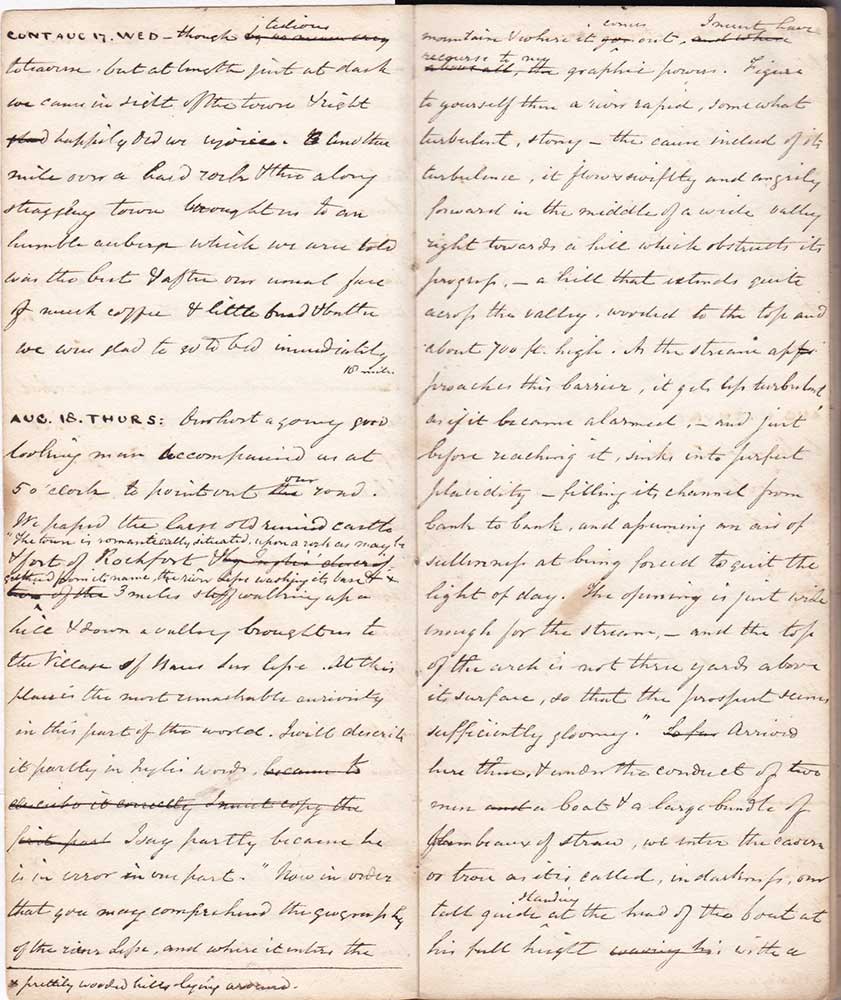 CONT AUG 17. WED – though tedious
to traverse. but at length just at dark
we came in sight of the town & right
glad happily did we rejoice. Another
mile over a hard rock & thro a long
straggling town brought us to an
humble auberge which we were told
was the best & after our usual fare
of much coffee & little bread & butter
we were glad to go to bed immediately
18 miles
AUG. 18. THURS: Our host a young good
looking man accompanied us at
our
5 o'clock to point out the road.
We passed the large old ruined castle
"The town is romantically situated upon a rock as may be
& fort of Rochfort & by Inglis'
gathered from its name, the river Lesse washing its base & x
two of the 3 miles stiff walking up a
hill & down a valley brought us to
the Village of Haus sur lesse. At this
place is the most remarkable curiosity
in this part of the world. I will describe
it partly in Inglis words, because to
describe it correctly I must copy the
first part I say partly because he
is in error in one part. "Now in order
that you may comprehend the geography
of the river Lesse, and where it enters the
x prettily wooded hills lying around.
comes I must have
mountain & where it goes out, and where
recourse to my
above all, the graphic powers. Figure
to yourself then a river rapid, somewhat
turbulent, stony – the cause indeed of its
turbulence, it flows swiftly and angrily
forward in the middle of a wide valley
right towards a hill which obstructs its
progress, – a hill that extends quite
across the valley. wooded to the top and
about 700 ft. high. As the stream ap-
proaches this barrier, it gets less turbulent
as if it became alarmed, – and just
before reaching it, sinks into perfect
placidity – filling its channel from
bank to bank, and assuming an air of
sullenness at being forced to quit the
light of day. The opening is just wide
enough for the stream, – and the top
of the arch is not three yards above
its surface, so that the prospect seems
sufficiently gloomy." So far Arrived
here then, & under the conduct of two
men and a boat & a large bundle of
flambeaux of straw, we enter the cavern
or trou as it is called, in darkness, our
standing
tall guide at the head of the boat at
his full height waving his with a